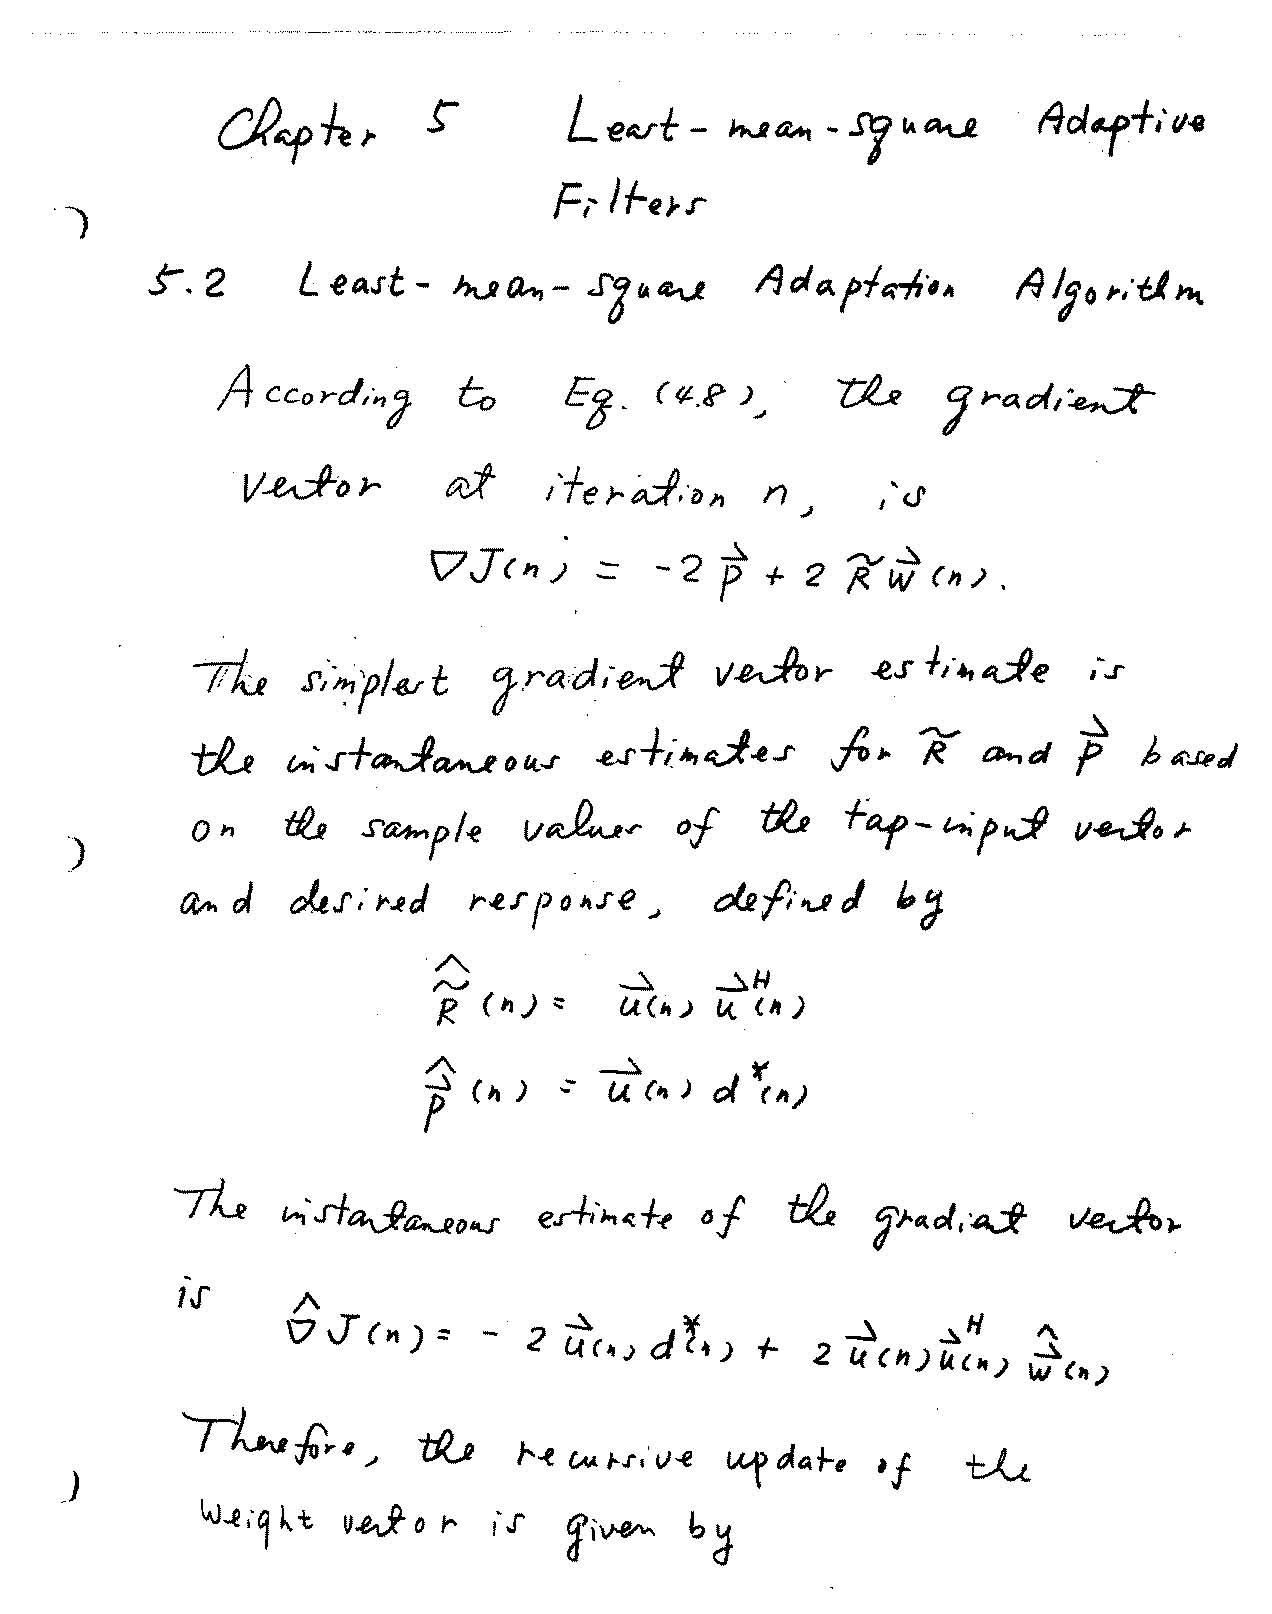 Chapter 5 Least-mean-square Adaptive
Filters
5.2 Least-mean-square Adaptation Algorithm
According to Eq. (4.8), the gradient
vector at iteration n, is
∇J(n) = -2 p⃗ + 2 R̃ w⃗(n).
The simplest gradient vector estimate is
the instantaneous estimates for R̃ and p⃗ based
on the sample values of the tap-input vector
and desired response, defined by
R̃̂(n) = u⃗(n) u⃗ᴴ(n)
p⃗̂(n) = u⃗(n) d*(n)
The instantaneous estimate of the gradient vector
is ∇̂J(n) = - 2 u⃗(n) d*(n) + 2 u⃗(n) u⃗ᴴ(n) w⃗̂(n)
Therefore, the recursive update of the
weight vector is given by